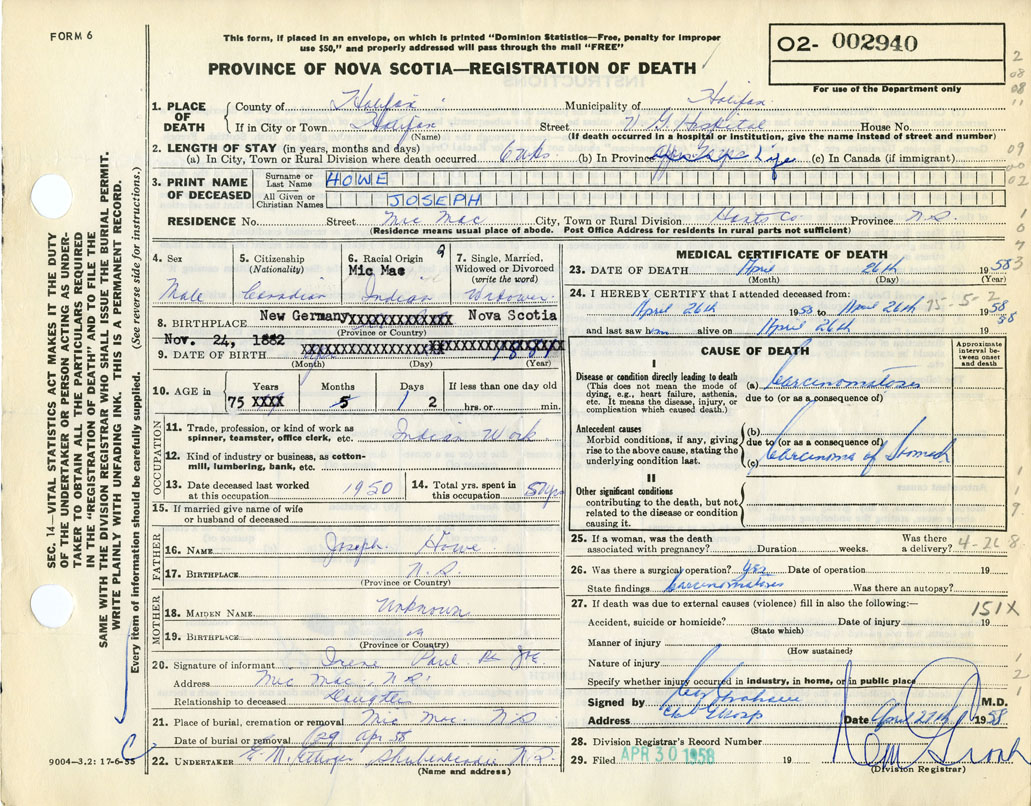 FORM 6
This form, if placed in an envelope, on which is printed "Dominion Statistics—Free, penalty for improper
use $50," and properly addressed will pass through the mail "FREE"
PROVINCE OF NOVA SCOTIA—REGISTRATION OF DEATH
02- 002940
For use of the Department only
1. PLACE OF DEATH
County of Halifax Municipality of Halifax
If in City or Town Halifax Street V G Hospital House No.
(Name) (If death occurred in a hospital or institution, give the name instead of street and number)
2. LENGTH OF STAY (in years, months and days)
(a) In City, Town or Rural Division where death occurred 6 wks (b) In Province Life (c) In Canada (if immigrant)
3. PRINT NAME OF DECEASED
Surname or Last Name HOWE
All Given or Christian Names JOSEPH
RESIDENCE No. Street Mic Mac City, Town or Rural Division Hants Co Province N.S.
(Residence means usual place of abode. Post Office Address for residents in rural parts not sufficient)
4. Sex
Male
5. Citizenship
(Nationality)
Canadian
6. Racial Origin
Mic Mac
Indian
7. Single, Married,
Widowed or Divorced
(write the word)
Widower
8. BIRTHPLACE New Germany XXXXXXXXXXX Nova Scotia
(Province or Country)
Nov. 24, 1882
9. DATE OF BIRTH
(Month) (Day) (Year)
10. AGE in
Years Months Days If less than one day old
75 XXXX 5 2 hrs. or min.
OCCUPATION
11. Trade, profession, or kind of work as
spinner, teamster, office clerk, etc. Indian Work
12. Kind of industry or business, as cotton-
mill, lumbering, bank, etc.
13. Date deceased last worked
at this occupation 1950
14. Total yrs. spent in
this occupation 50 yrs
15. If married give name of wife
or husband of deceased
FATHER
16. NAME Joseph Howe
17. BIRTHPLACE N.S.
(Province or Country)
MOTHER
18. MAIDEN NAME Unknown
19. BIRTHPLACE
(Province or Country)
20. Signature of informant Irene Paul
Address Mic Mac N.S.
Relationship to deceased Daughter
21. Place of burial, cremation or removal Mic Mac N S
Date of burial or removal 29 Apr 58
22. UNDERTAKER Shubenacadie N.S.
(Name and address)
MEDICAL CERTIFICATE OF DEATH
23. DATE OF DEATH April 26th 1958
(Month) (Day) (Year)
24. I HEREBY CERTIFY that I attended deceased from:
April 26th 1958 to April 26th 1958
75-5-2
and last saw him alive on April 26th 19 58
CAUSE OF DEATH
Approximate
interval be-
tween onset
and death
I
Disease or condition directly leading to death
(This does not mean the mode of
dying, e.g., heart failure, asthenia,
etc. It means the disease, injury, or
complication which caused death.)
(a) Carcinomatosis
due to (or as a consequence of)
Antecedent causes
Morbid conditions, if any, giving
rise to the above cause, stating the
underlying condition last.
(b)
due to (or as a consequence of)
(c) Carcinoma of Stomach
II
Other significant conditions
contributing to the death, but not
related to the disease or condition
causing it.
25. If a woman, was the death
associated with pregnancy? Duration weeks. Was there
a delivery?
4-26-8
26. Was there a surgical operation? yes Date of operation 19
State findings Carcinomatosis Was there an autopsy?
27. If death was due to external causes (violence) fill in also the following:—
151X
Accident, suicide or homicide? Date of injury 19
(State which)
Manner of injury
(How sustained)
Nature of injury
Specify whether injury occurred in industry, in home, or in public place
Signed by M.D.
Address Date April 27th 1958
28. Division Registrar's Record Number
29. Filed APR 30 1958 19
(Division Registrar)
SEC. 14—VITAL STATISTICS ACT MAKES IT THE DUTY
OF THE UNDERTAKER OR PERSON ACTING AS UNDER-
TAKER TO OBTAIN ALL THE PARTICULARS REQUIRED
IN THE "REGISTRATION OF DEATH" AND TO FILE THE
SAME WITH THE DIVISION REGISTRAR WHO SHALL ISSUE THE BURIAL PERMIT.
WRITE PLAINLY WITH UNFADING INK. THIS IS A PERMANENT RECORD.
Every item of information should be carefully supplied. (See reverse side for instructions.)
9004—3.2: 17-6-55